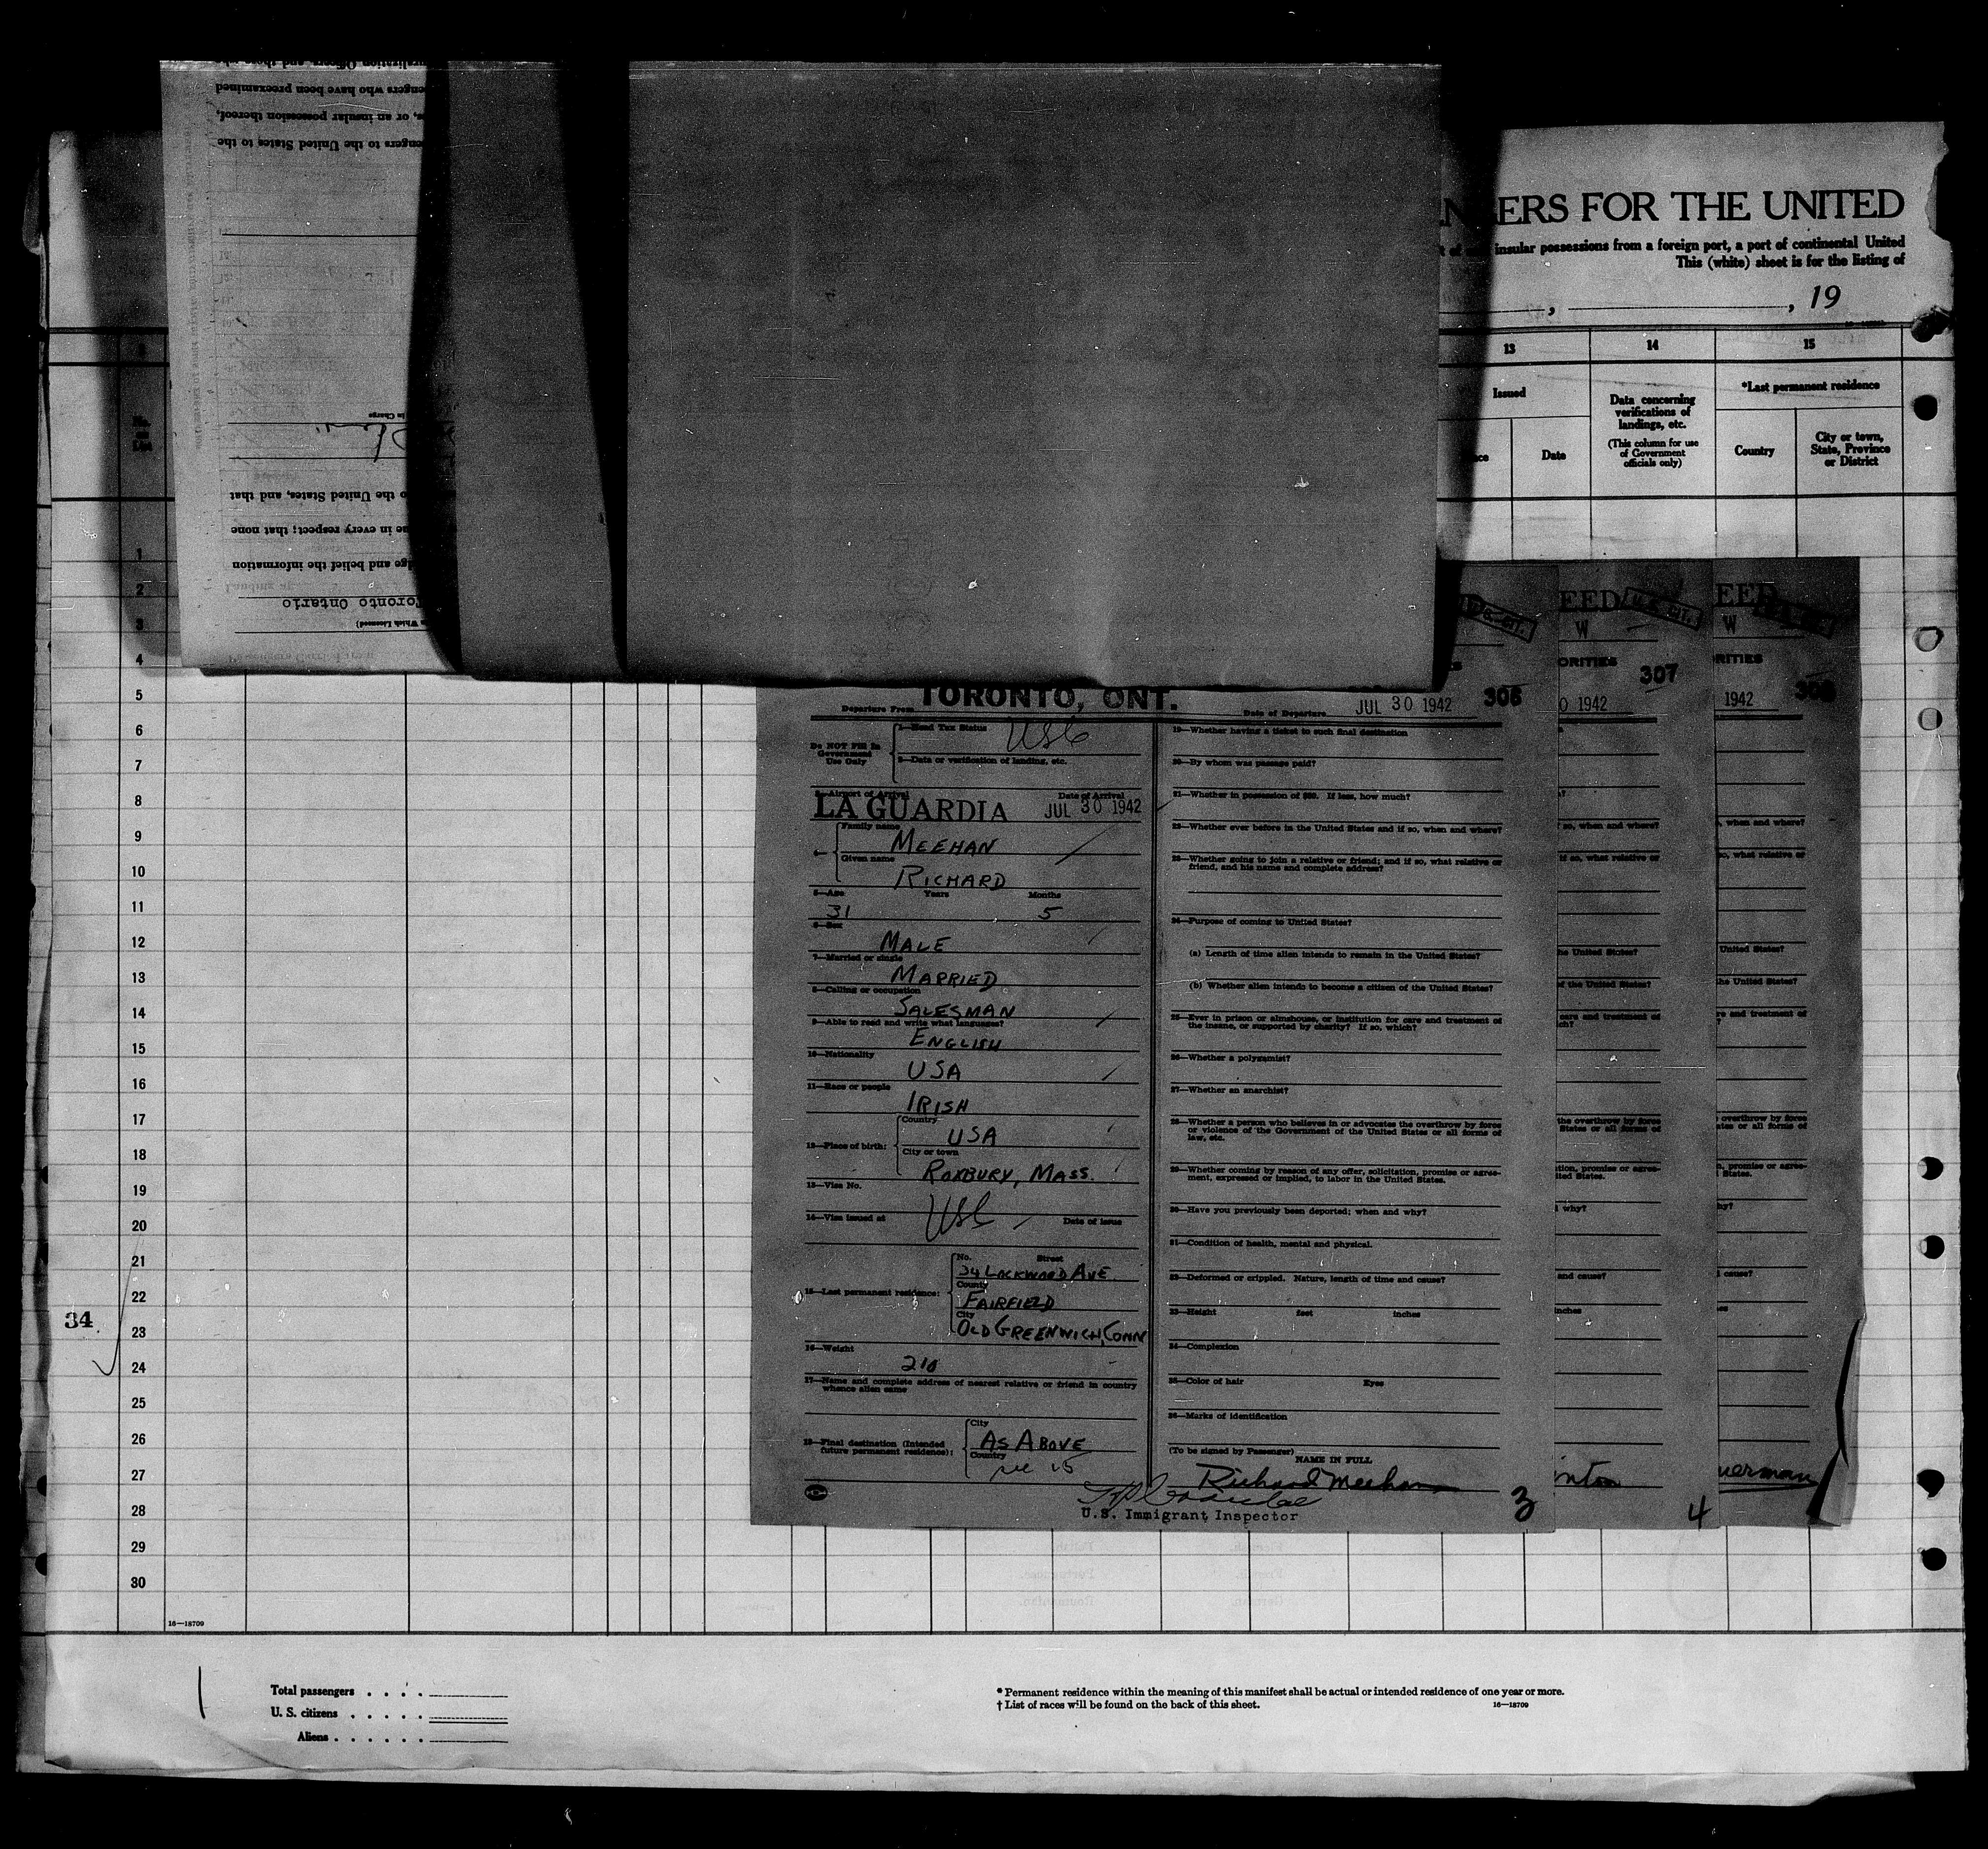 ERS FOR THE UNITED
insular possessions from a foreign port, a port of continental United
This (white) sheet is for the listing of
, 19
13
14
15
Issued
Date
Data concerning
verifications of
landings, etc.
(This column for use
of Government
officials only)
*Last permanent residence
Country
City or town,
State, Province
or District
engers to the United States to the
s, or an insular possession thereof,
engers who have been preexamined
In Charge
o the United States, and that
ue in every respect; that none
ge and belief the information
Toronto Ontario
h Which Licensed)
1
2
3
4
5
6
7
8
9
10
11
12
13
14
15
16
17
18
19
20
21
22
23
24
25
26
27
28
29
30
34
Departure From TORONTO, ONT.
Date of Departure JUL 30 1942 306
Do NOT Fill In
Government
Use Only
1—Head Tax Status
USC
2—Data or verification of landing, etc.
3—Airport of Arrival
Date of Arrival
LA GUARDIA JUL 30 1942
4—
Family name
MEEHAN
Given name
RICHARD
5—Age Years Months
31 5
6—Sex
MALE
7—Married or single
MARRIED
8—Calling or occupation
SALESMAN
9—Able to read and write what languages?
ENGLISH
10—Nationality
USA
11—Race or people
IRISH
12—Place of birth:
Country
USA
City or town
ROXBURY, MASS.
13—Visa No.
USC
14—Visa issued at Date of issue
15—Last permanent residence:
No. Street
34 LOCKWOOD AVE
County
FAIRFIELD
City
OLD GREENWICH, CONN
16—Weight
210
17—Name and complete address of nearest relative or friend in country
whence alien came
18—Final destination (Intended
future permanent residence):
City
AS ABOVE
Country
19—Whether having a ticket to such final destination
20—By whom was passage paid?
21—Whether in possession of $50. If less, how much?
22—Whether ever before in the United States and if so, when and where?
23—Whether going to join a relative or friend; and if so, what relative or
friend, and his name and complete address?
24—Purpose of coming to United States?
(a) Length of time alien intends to remain in the United States?
(b) Whether alien intends to become a citizen of the United States?
25—Ever in prison or almshouse, or institution for care and treatment of
the insane, or supported by charity? If so, which?
26—Whether a polygamist?
27—Whether an anarchist?
28—Whether a person who believes in or advocates the overthrow by force
or violence of the Government of the United States or all forms of
law, etc.
29—Whether coming by reason of any offer, solicitation, promise or agree-
ment, expressed or implied, to labor in the United States.
30—Have you previously been deported; when and why?
31—Condition of health, mental and physical.
32—Deformed or crippled. Nature, length of time and cause?
33—Height feet inches
34—Complexion
35—Color of hair Eyes
36—Marks of identification
(To be signed by Passenger)
NAME IN FULL
Richard Meehan
U.S. Immigrant Inspector
3
EED
U.S. CIT.
W
ORITIES
307
0 1942
inton
4
EED
W
RITIES
1942
308
uerman
16—18709
Total passengers
U. S. citizens
Aliens
* Permanent residence within the meaning of this manifest shall be actual or intended residence of one year or more.
† List of races will be found on the back of this sheet.
16—18709